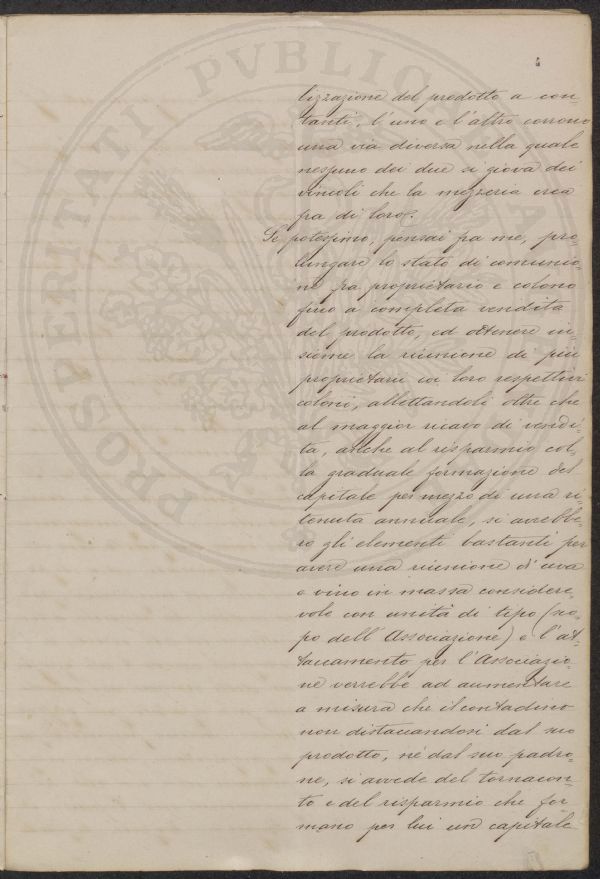 4
lizzazione del prodotto a con-
tanti, l'uno e l'altro corrono
una via diversa nella quale
nessuno dei due si giova dei
vincoli che la mezzeria crea
fra di loro.
Se potessimo, pensai fra me, pro-
lungare lo stato di comunio-
ne fra proprietario e colono
fino a completa vendita
del prodotto, ed ottenere in-
sieme la riunione di più
proprietarii coi loro respettivi
coloni, allettandoli oltre che
al maggior ricavo di vendi-
ta, anche al risparmio col-
la graduale formazione del
capitale per mezzo di una ri-
tenuta annuale, si avrebbe-
ro gli elementi bastanti per
avere una riunione di uva
o vino in massa considere-
vole con unità di tipo (sco-
po dell'Associazione) e l'at-
taccamento per l'Associazio-
ne verrebbe ad aumentare
a misura che il contadino
non distaccandosi dal suo
prodotto, nè dal suo padro-
ne, si avvede del tornacon-
to e del risparmio che for-
mano per lui un capitale
PROSPERITATI PVBLICAE A